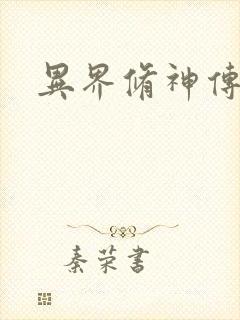 異界脩神傳
秦荣書